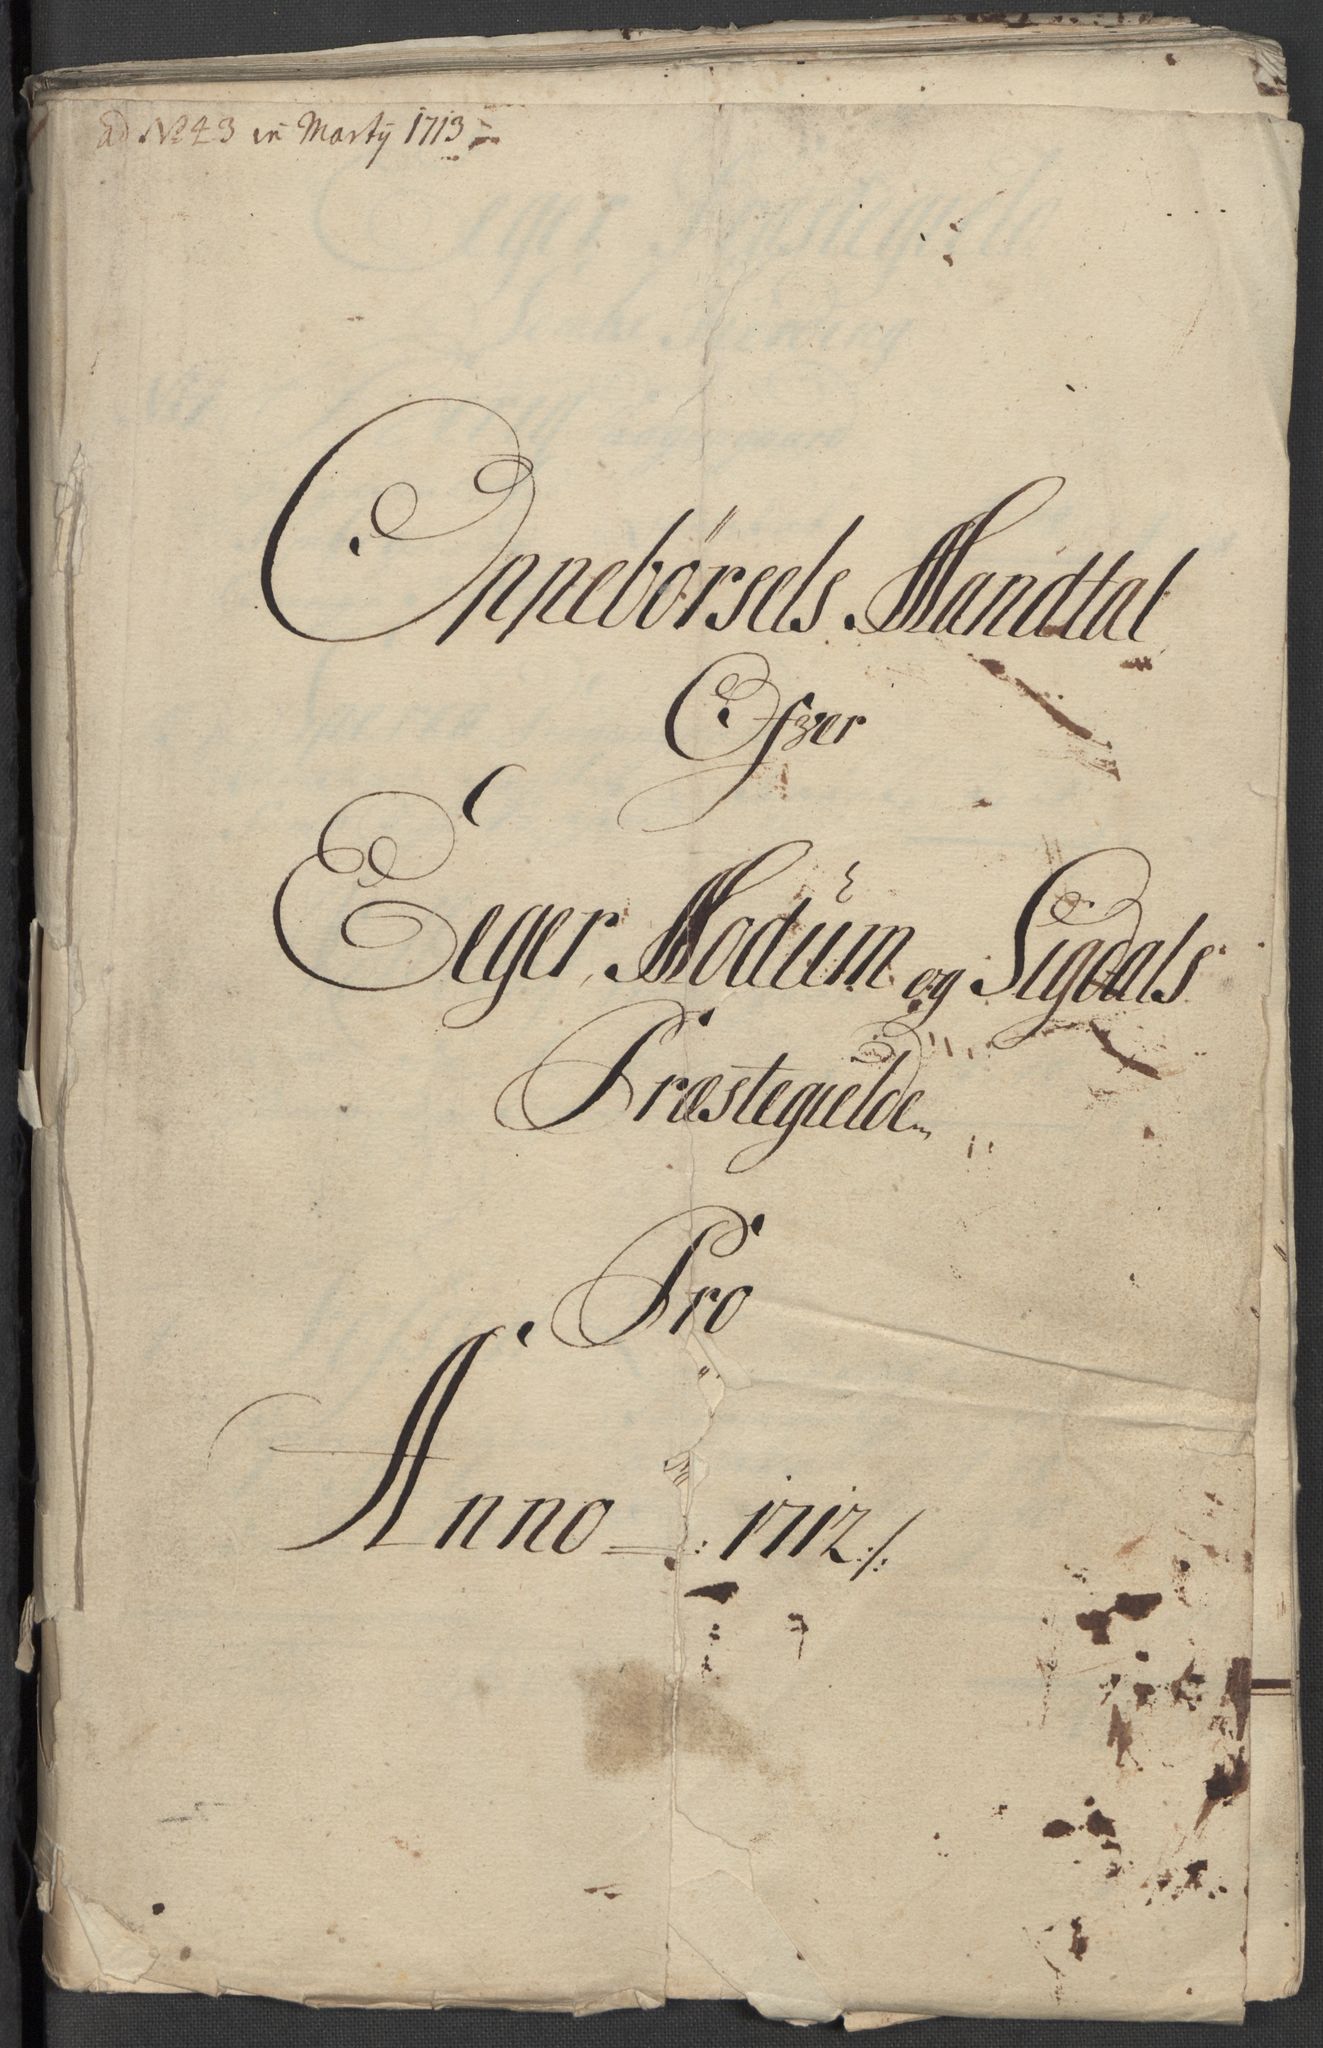 ad No 43 in Martij 1713
Oppebørsels Mandtal
Ofver
Eeger, Modum og Sigdals
Præstegielde
Pro
Anno 1712